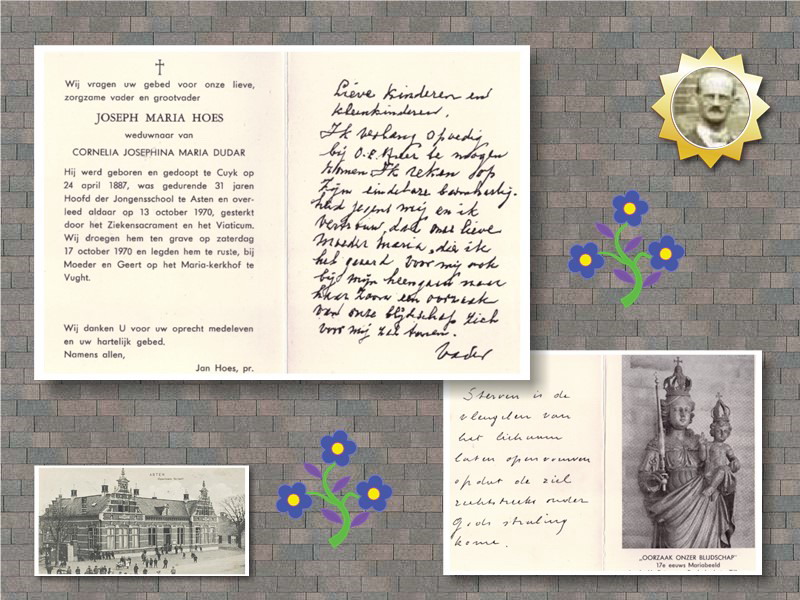 Wij vragen uw gebed voor onze lieve,
zorgzame vader en grootvader
JOSEPH MARIA HOES
weduwnaar van
CORNELIA JOSEPHINA MARIA DUDAR
Hij werd geboren en gedoopt te Cuyk op
24 april 1887, was gedurende 31 jaren
Hoofd der Jongensschool te Asten en over-
leed aldaar op 13 october 1970, gesterkt
door het Ziekensacrament en het Viaticum.
Wij droegen hem ten grave op zaterdag
17 october 1970 en legden hem te ruste, bij
Moeder en Geert op het Maria-kerkhof te
Vught.
Wij danken U voor uw oprecht medeleven
en uw hartelijk gebed.
Namens allen,
Jan Hoes, pr.
Lieve kinderen en
kleinkinderen,
Ik verlang spoedig
bij O.L. Heer te mogen
komen. Ik reken op
Zijn eindeloze barmhartig-
heid jegens mij en ik
vertrouw, dat onze lieve
Moeder Maria, die ik
heb geëerd voor mij ook
bij mijn heengaan naar
haar Zoon een oorzaak
van onze blijdschap zich
voor mij zal tonen.
Vader
Sterven is de
vleugelen van
het lichaam
laten openvouwen
opdat de ziel
rechtstreeks onder
Gods straling
kome.
"OORZAAK ONZER BLIJDSCHAP"
17e eeuws Mariabeeld
ASTEN